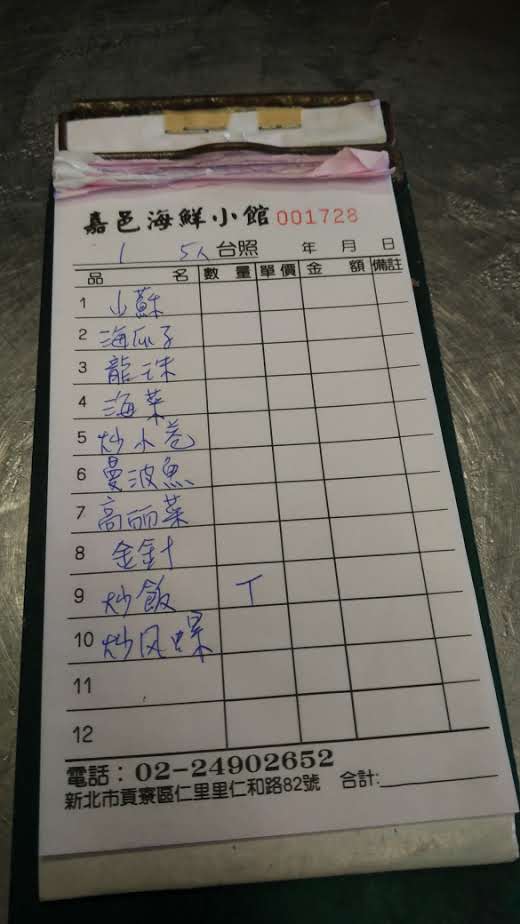 嘉邑海鮮小館 001728
1 5人 台照 年 月 日
品 名 數 量 單價 金 額 備註
1 山蘇
2 海瓜子
3 龍珠
4 海菜
5 炒小卷
6 曼波魚
7 高丽菜
8 金針
9 炒飯 T
10 炒风螺
11
12
電話：02-24902652
新北市貢寮區仁里里仁和路82號 合計: